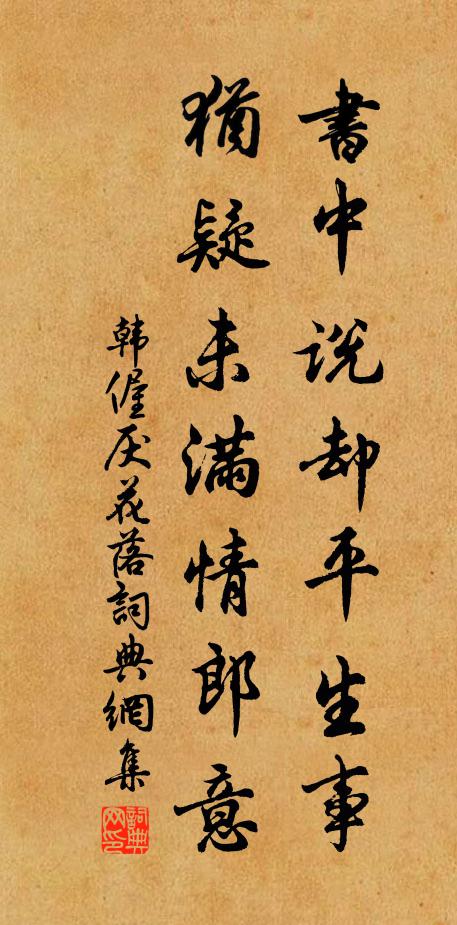 書中説却平生事
猶疑未滿情郎意
韩偓厌花落詞典網集
詞典网印